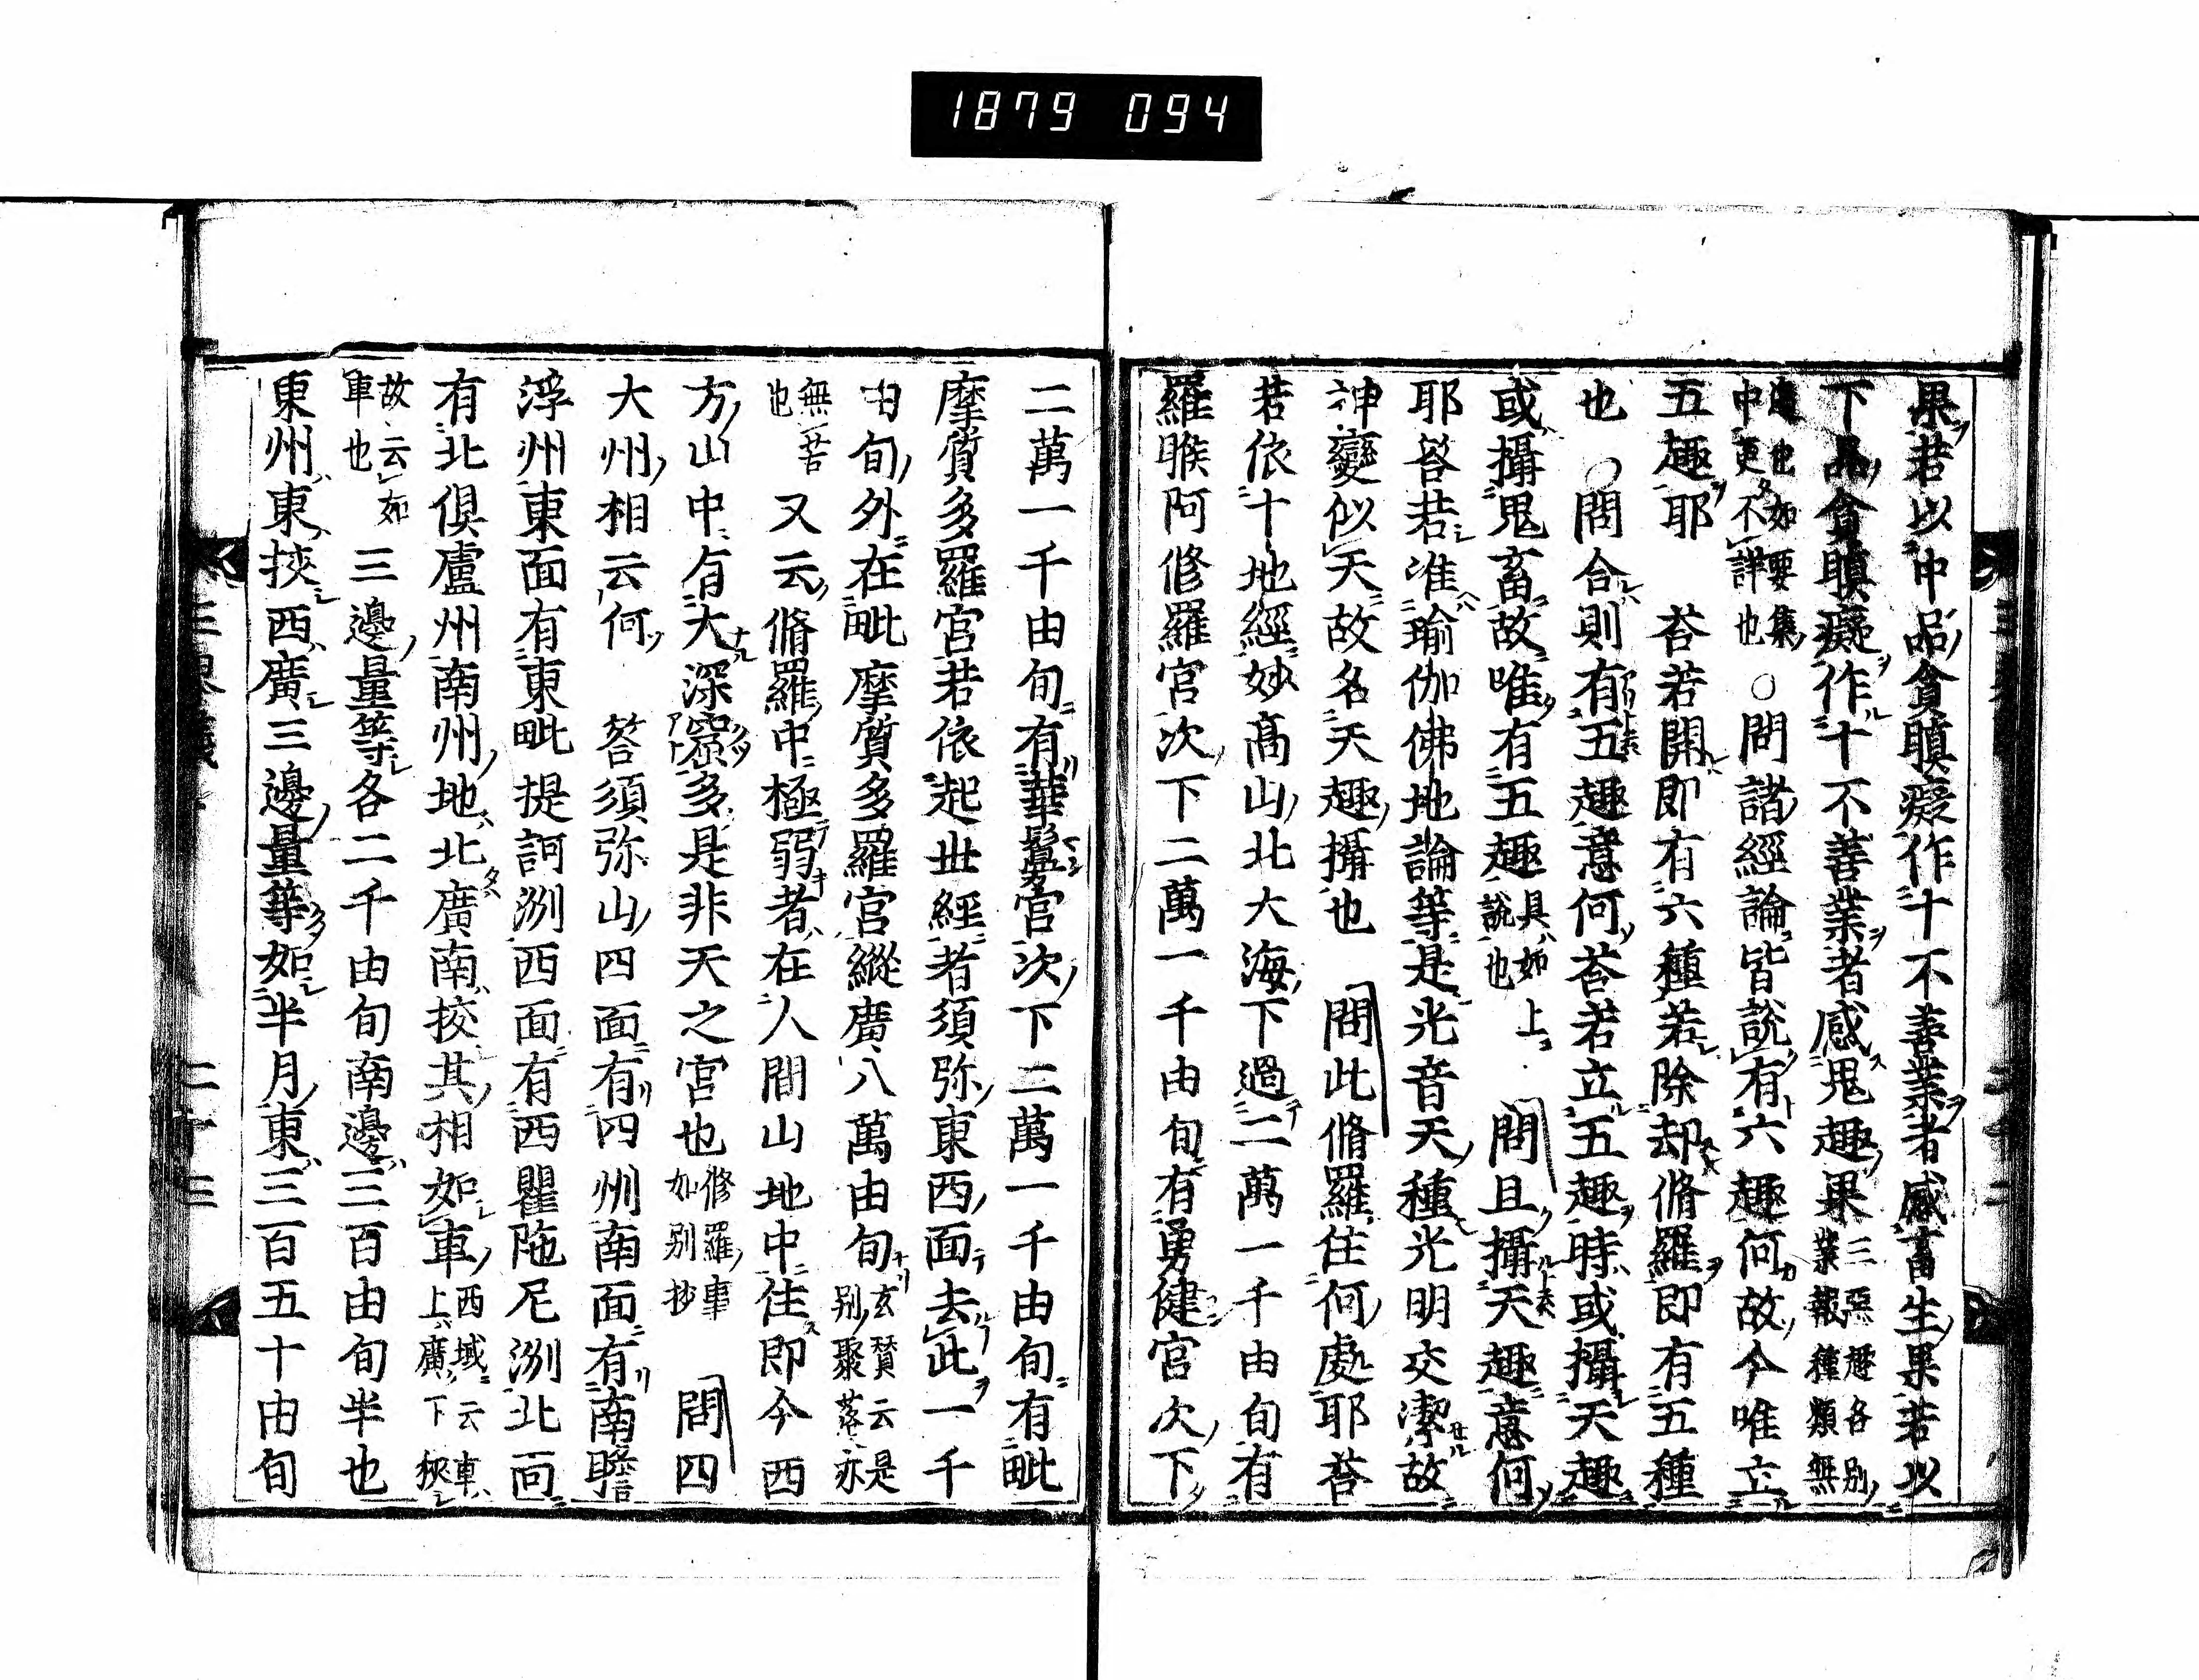 1879 094
果若以中品貪瞋癡作十不善業者感畜生果若以
下品貪瞋癡作十不善業者感鬼趣果三惡趣各別業報種類無
邊也如要集中更不詳也○問諸經論皆說有六趣何故今唯立
五趣耶 荅若開即有六種若除却脩羅即有五種
也○問合則有五趣意何荅若立五趣時或攝天趣
或攝鬼畜故唯有五趣具如上說也 問且攝天趣意何
耶荅若准瑜伽佛地論等是光音天種光明交潔故
神變似天故名天趣攝也 問此脩羅住何處耶荅
若依十地經妙高山北大海下過二萬一千由旬有
羅睺阿修羅宮次下二萬一千由旬有勇健宮次下
二萬一千由旬有華鬘宮次下二萬一千由旬有毗
摩質多羅宮若依起世經者須弥東西面去此一千
由旬外在毗摩質多羅宮縱廣八萬由旬玄賛云是別聚落亦
無苦也 又云脩羅中極弱者在人間山地中住即今西
方山中有大深窟多是非天之宮也修羅事如別抄 問四
大州相云何 答須弥山四面有四州南面有南瞻
浮州東面有東毗提訶洲西面有西瞿陁尼洲北面
有北俱盧州南州地北廣南挍其相如車西域云車上廣下狹
故云如車也 三邊量等各二千由旬南邊三百由旬半也
東州東挾西廣三邊量等如半月東三百五十由旬
二十三